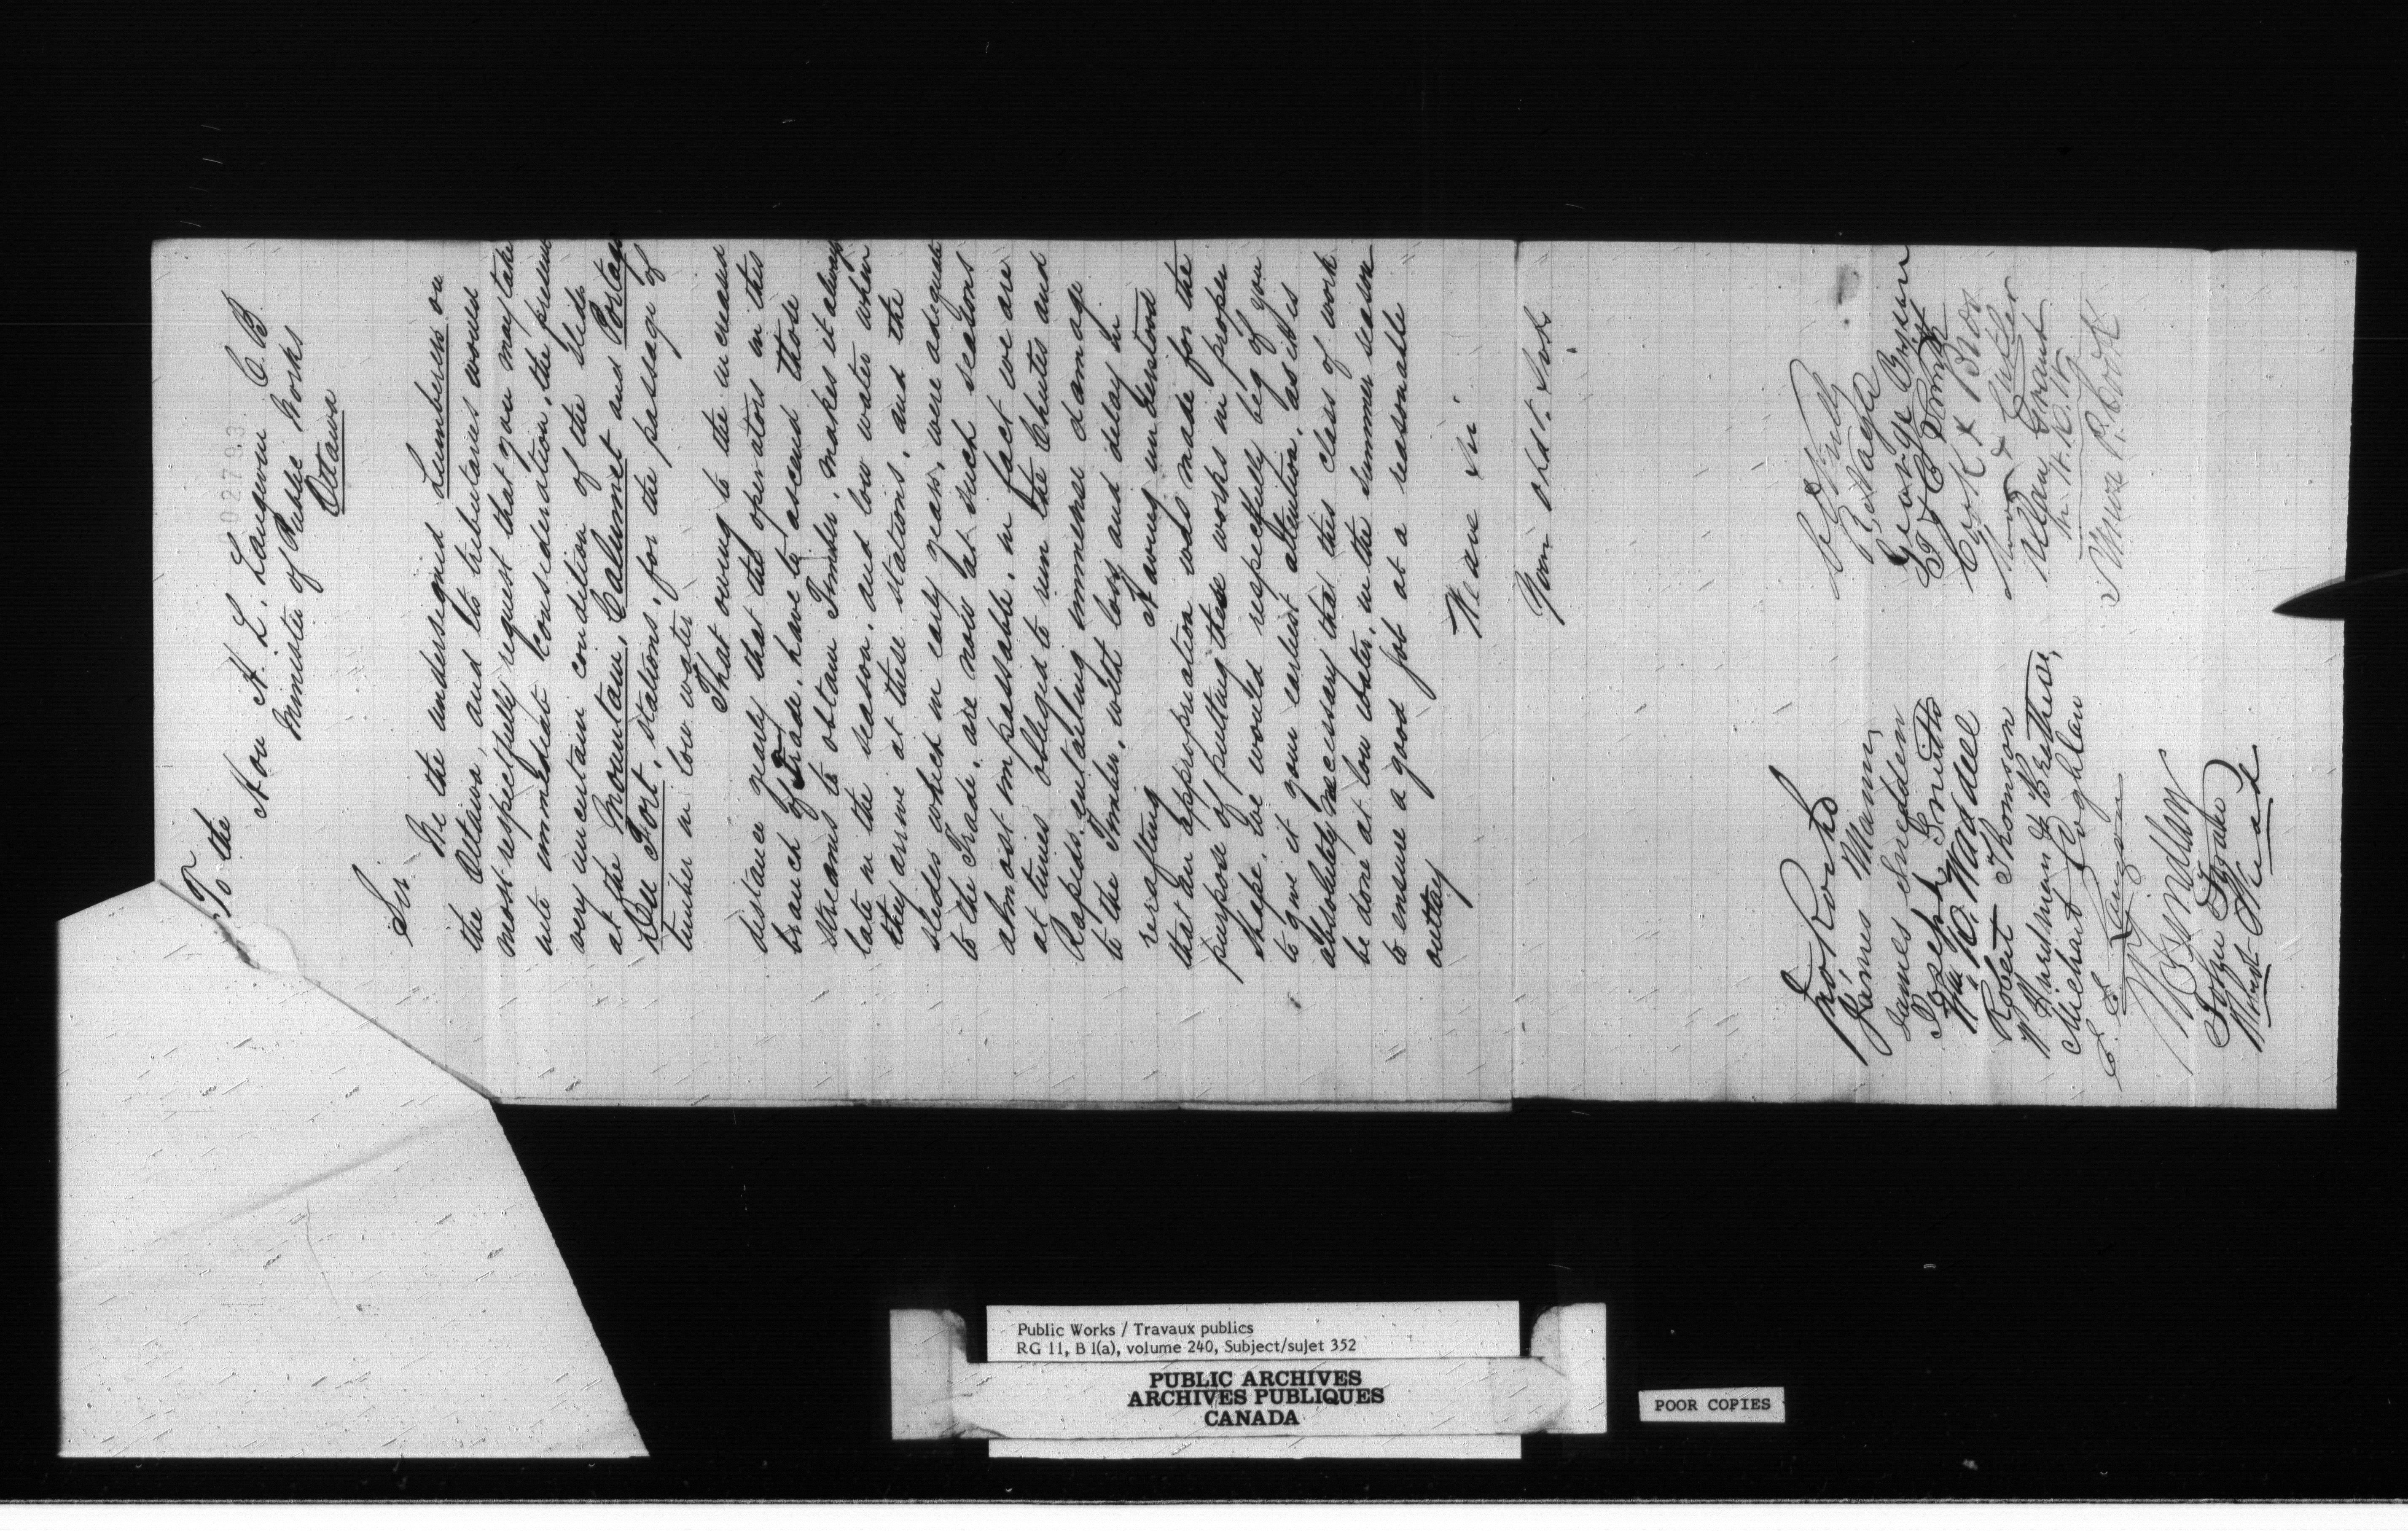 To the
Hon H. L. Langevin C.B.
Minister of Public Works
Ottawa
002793
Sir
We the undersigned Lumberers on
the Ottawa, and its tributaries would
most respectfully request that you may take
into immediat consideration, the present
very uncertain condition of the slides
at the Mountain, Calumet and Portage
Du Fort, stations, for the passage of
timber in low water
That owing to the increased
distance yearly that the operators in this
branch of Trade, have to ascend those
streams to obtain Timber, makes it always
late in the season, and low water when
they arrive at these stations, and the
slides which in early years, were adequate
to the Trade, are now at such seasons
almost impassable, in fact we are
at times obliged to run the Chutes and
Rapids, entailing immense damage
to the Timber, with loss and delay in
rerafting
It being understood
that an appropriation was made for the
purpose of putting these works in proper
shape, we would respectfully beg of you
to give it your earliest attention, as it is
absolutely necessary that this class of work
be done at low water, in the summer season
to ensure a good job at a reasonable
outlay
We are Sir
Your Obdt. Svts.
James Mann
James Snedden
Joseph Smith
Wm R. Waddell
Robert Thomson
W Hurdman & Brothers
Michael Coghlan
John
Robert
R. Nagle
George Bryson
Cook & Bros
Allan Grant
Public Works / Travaux publics
RG 11, B 1(a), volume 240, Subject/sujet 352
PUBLIC ARCHIVES
ARCHIVES PUBLIQUES
CANADA
POOR COPIES